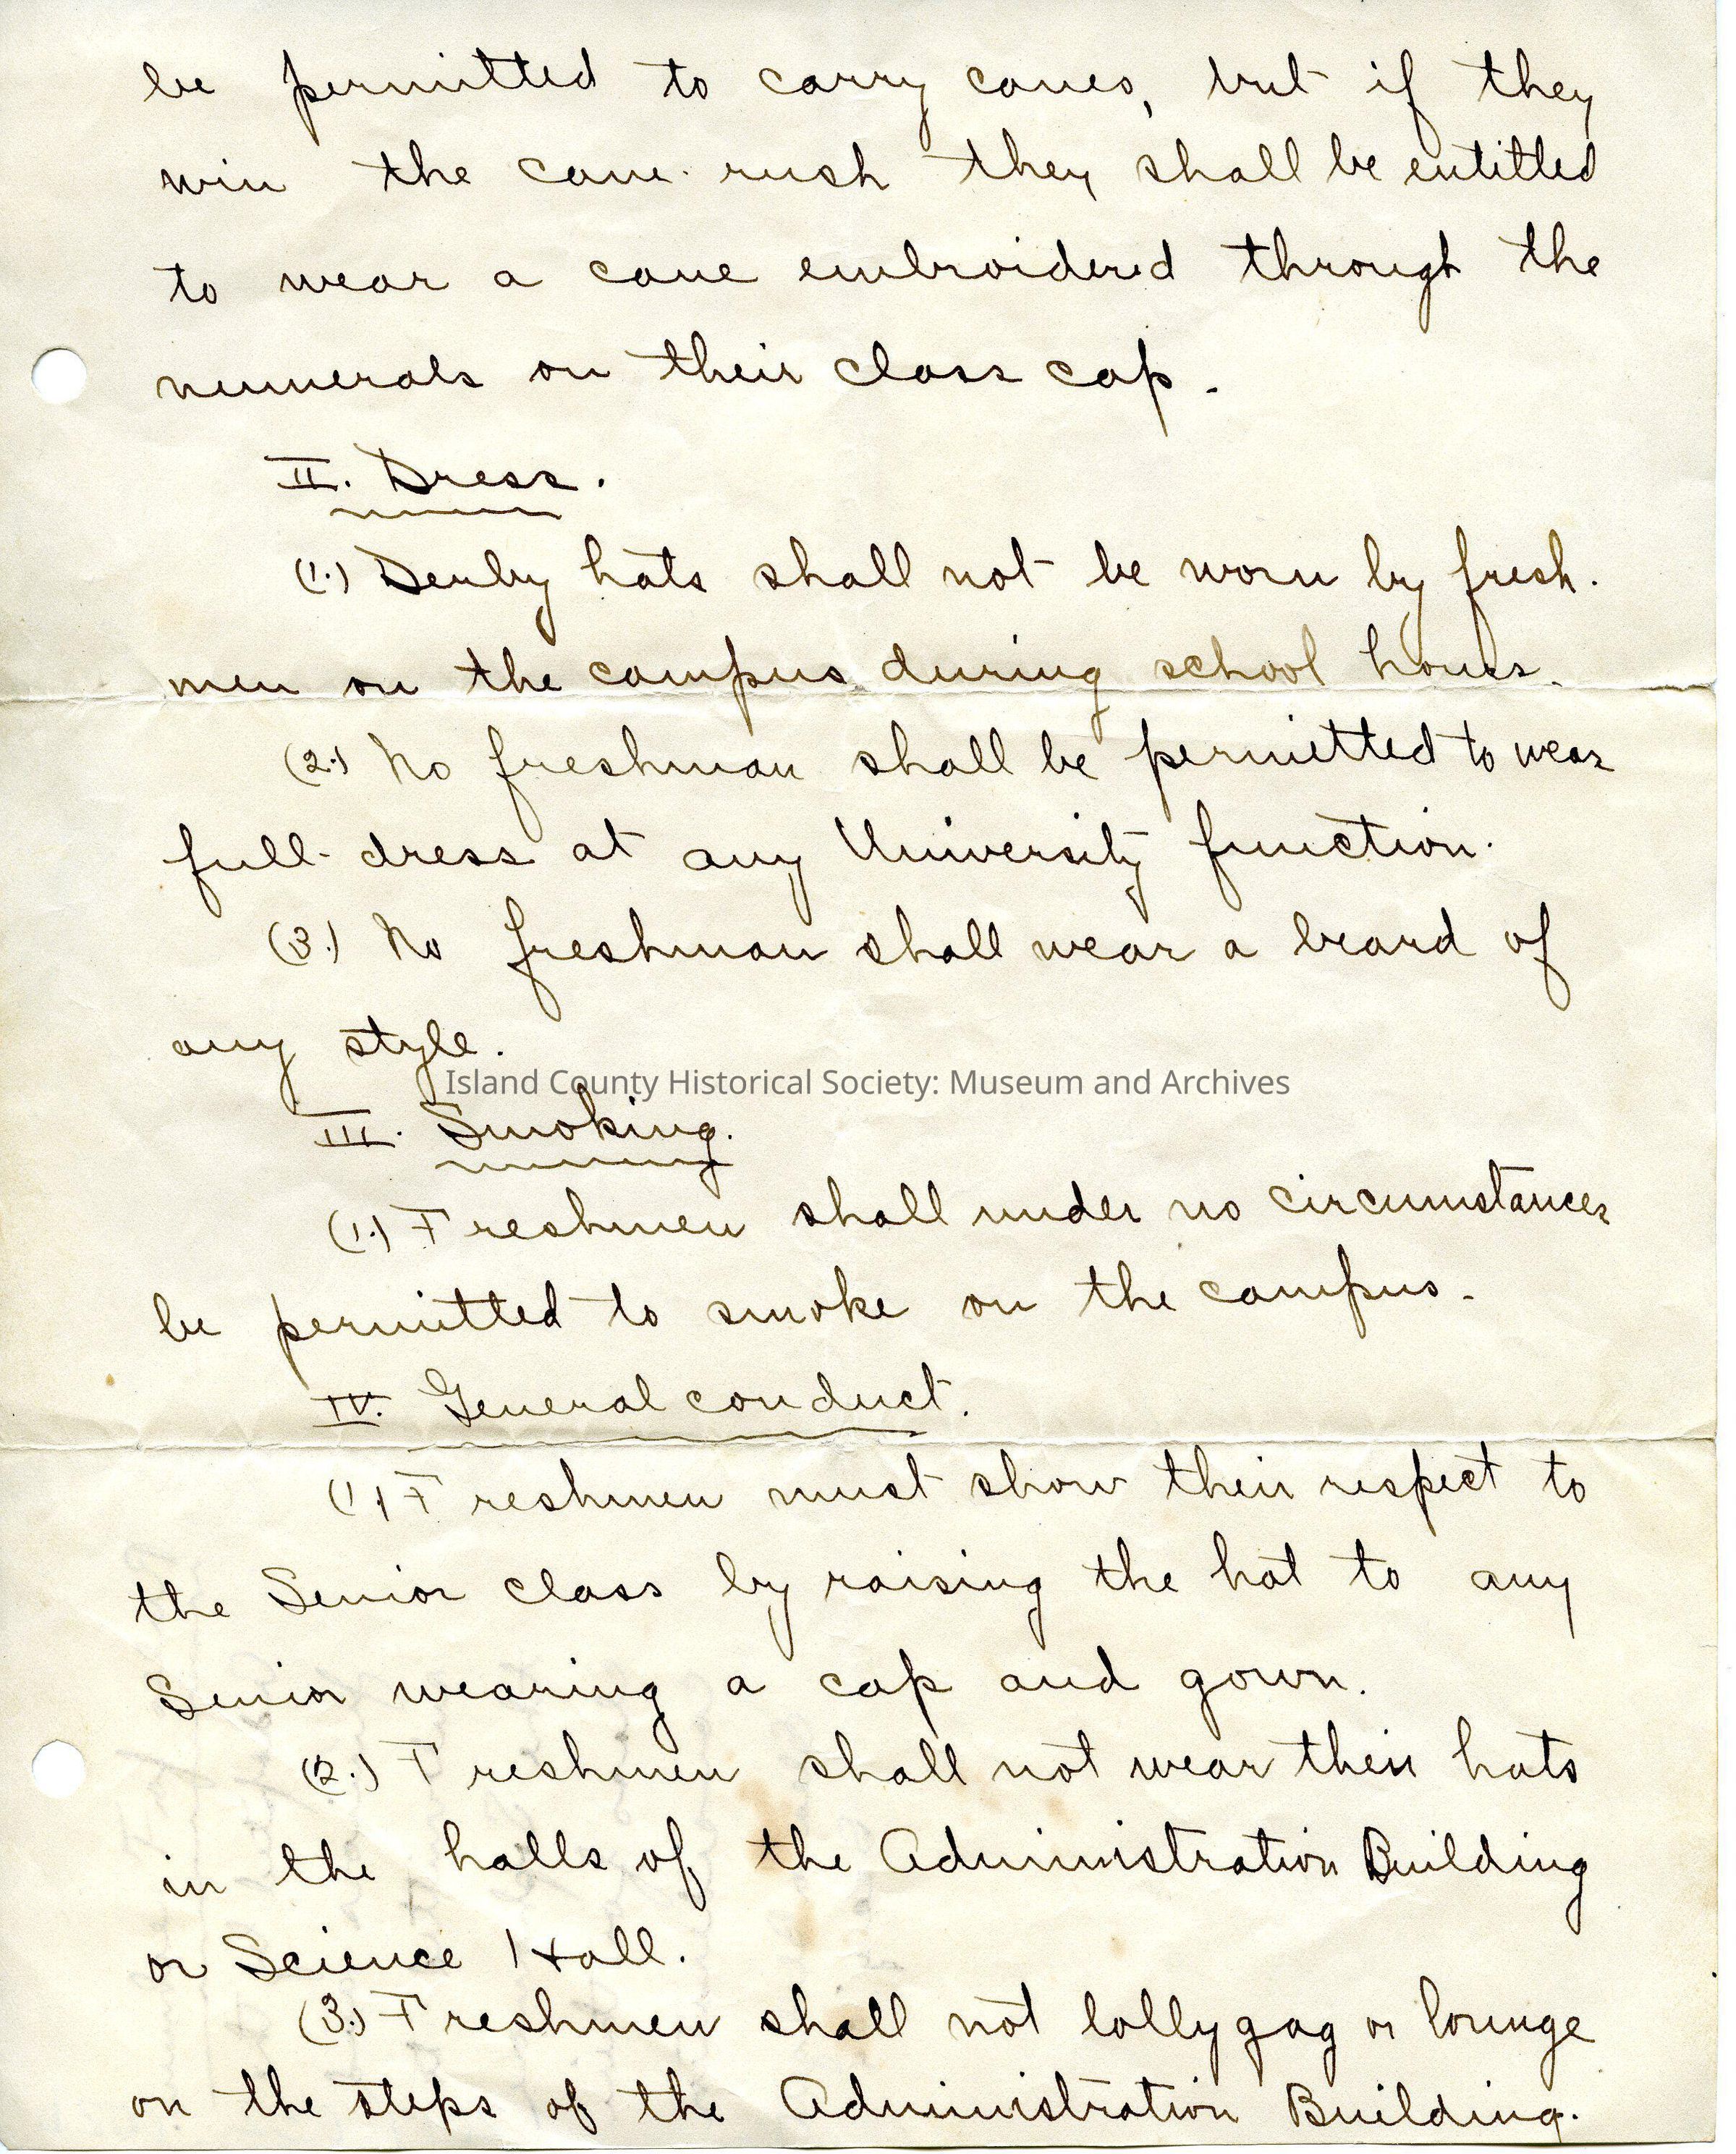 be permitted to carry canes, but if they
win the cane-rush they shall be entitled
to wear a cane embroidered through the
numerals on their class cap.
II. Dress.
(1.) Derby hats shall not be worn by fresh-
men on the campus during school hours.
(2.) No freshman shall be permitted to wear
full-dress at any University function.
(3.) No freshman shall wear a beard of
any style.
Island County Historical Society: Museum and Archives
III. Smoking.
(1.) Freshmen shall under no circumstances
be permitted to smoke on the campus.
IV. General conduct.
(1) Freshmen must show their respect to
the Senior class by raising the hat to any
Senior wearing a cap and gown.
(2.) Freshmen shall not wear their hats
in the halls of the Administration Building
or Science Hall.
(3.) Freshmen shall not lollygag or lounge
on the steps of the Administration Building.